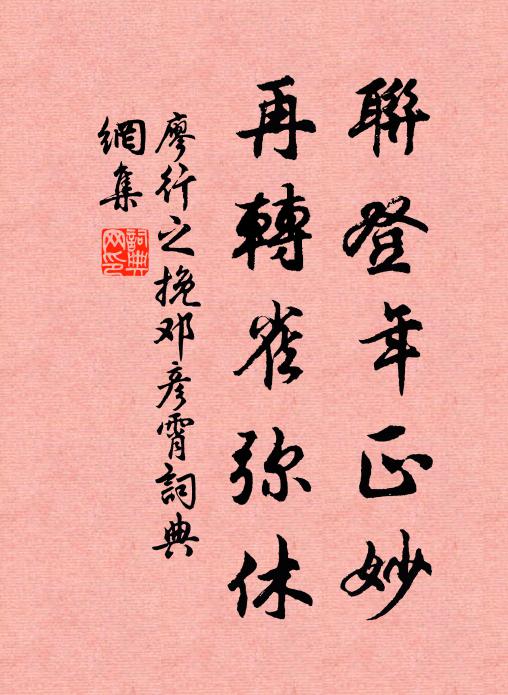 聯登年正妙
再轉雀弥休
廖行之挽邓彦霄詞典
網集
詞典
网印